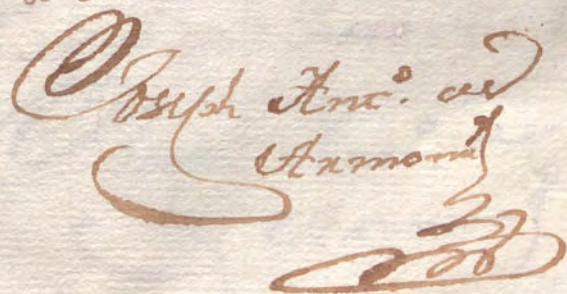 Joseph Antᵒ. de
Armona